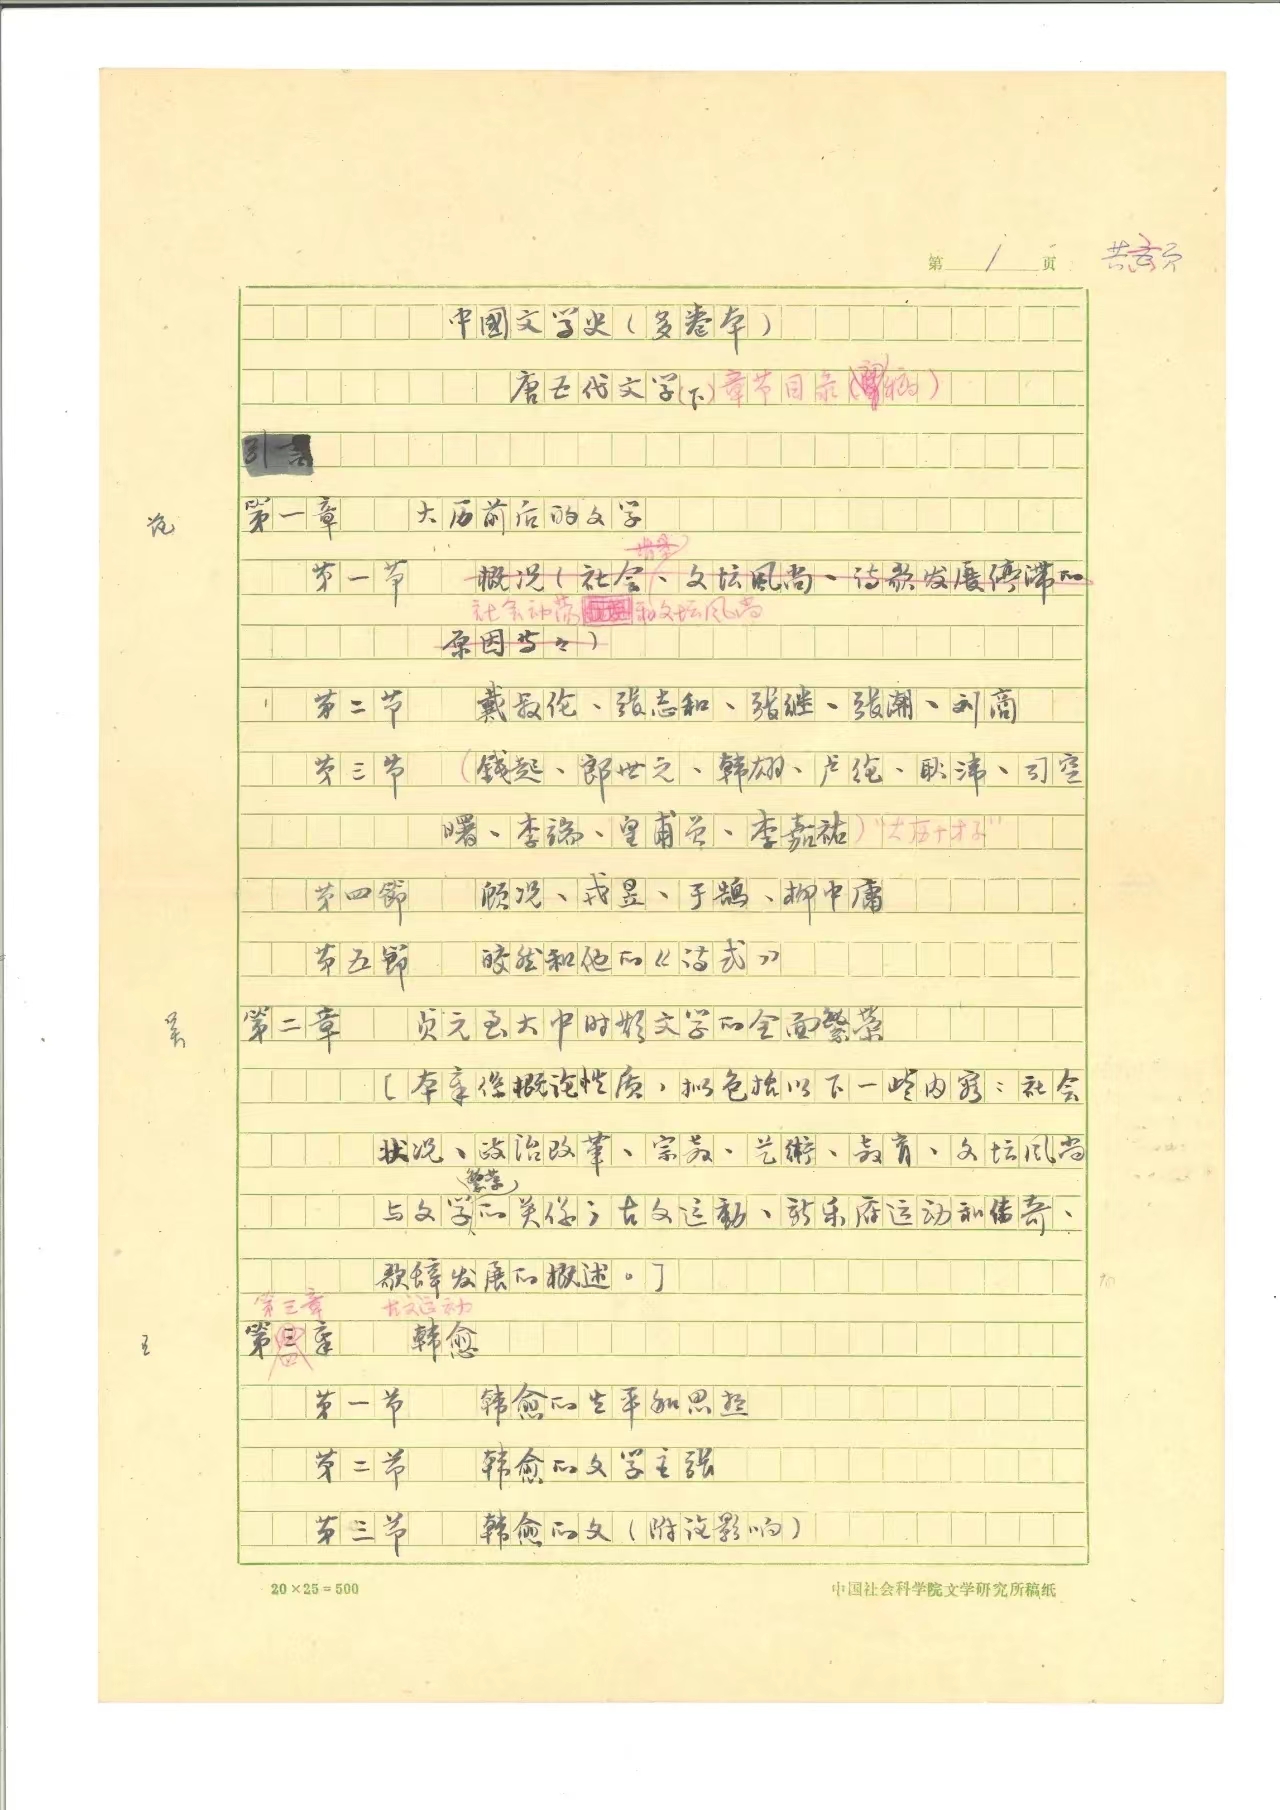 第 1 页 共 页
中國文学史（多卷本）
唐五代文学（下）章节目录（ 稿）
引言
范 第一章 大历前后的文学
背景
第一节 概况（社会、文坛風尚、诗歌发展停滞的
社会动荡 和文坛风尚
原因等々）
第二节 戴叔伦、张志和、张继、张潮、刘商
第三节 （錢起、郎世元、韩翃、卢纶、耿湋、司空
曙、李端、皇甫 、李嘉祐）“大历十才子”
第四節 顾况、戎昱、于鹄、柳中庸
第五節 皎然和他的《诗式》
吴 第二章 贞元至大中时期文学的全面繁荣
［本章係概论性质，拟包括以下一些内容：社会
状况、政治改革、宗教、艺術、教育、文坛風尚
繁荣
与文学的关係；古文运動、新乐府运动和传奇、
歌辞发展的概述。］
第三章 古文运动
王 第三章 韩愈
第一节 韩愈的生平和思想
第二节 韩愈的文学主张
第三节 韩愈的文（附论影响）
20×25=500 中国社会科学院文学研究所稿纸